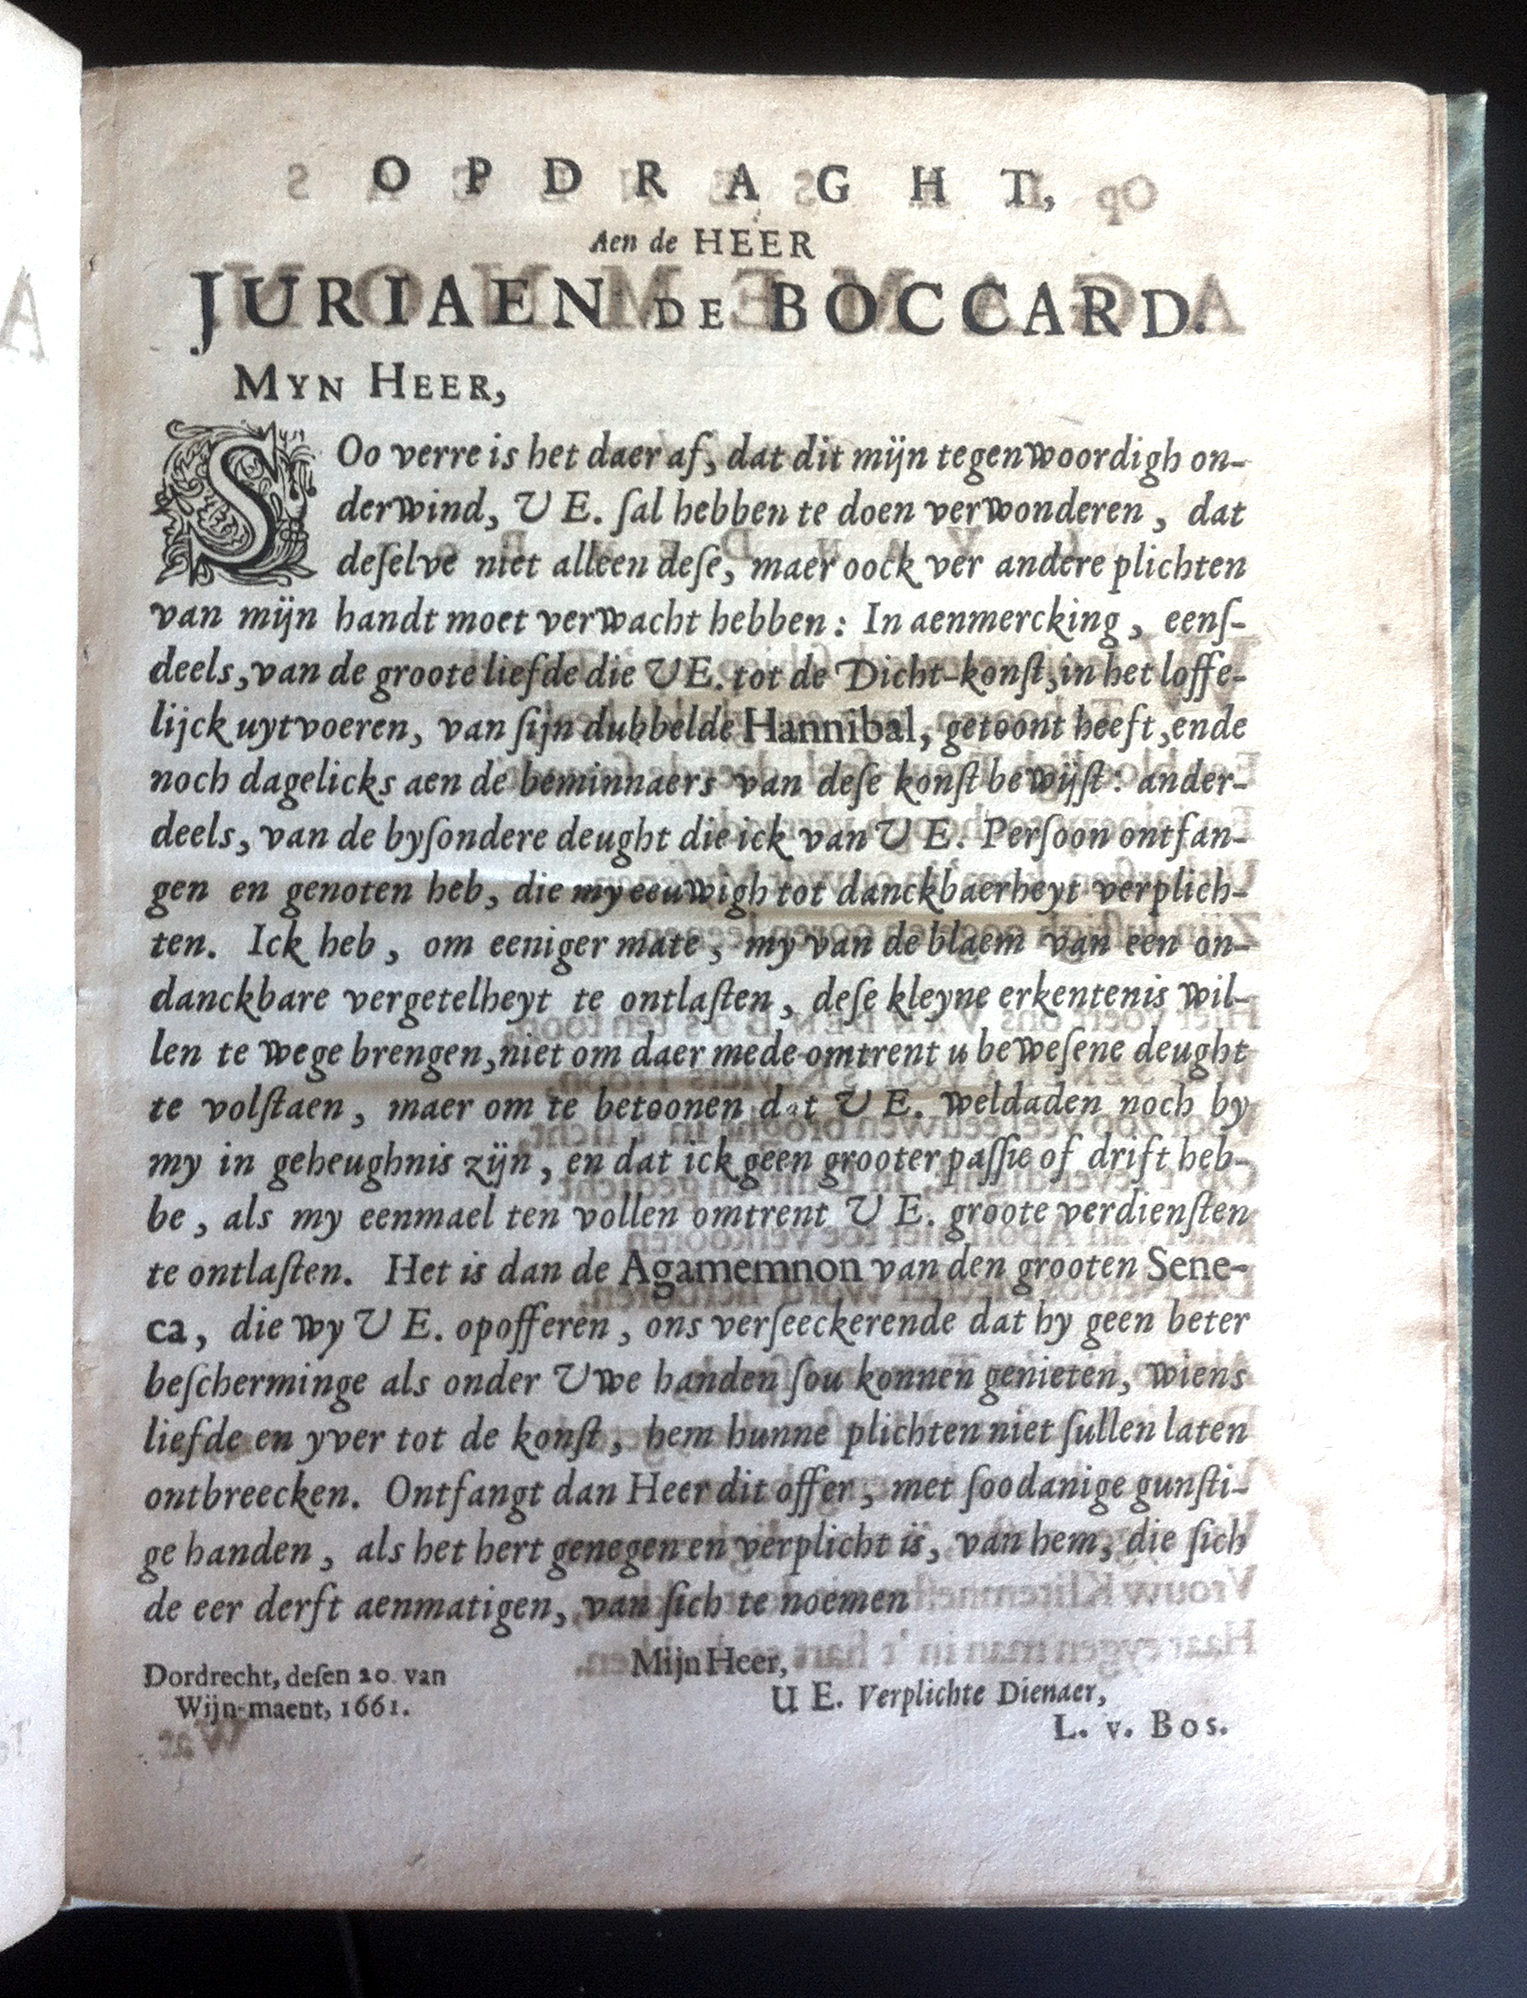 OPDRAGHT,
Aen de HEER
JURIAEN DE BOCCARD.
MYN HEER,
Soo verre is het daer af, dat dit mijn tegenwoordigh on-
derwind, U E. ſal hebben te doen verwonderen, dat
deſelve niet alleen deſe, maer oock ver andere plichten
van mijn handt moet verwacht hebben: In aenmercking, eenſ-
deels, van de groote liefde die U E. tot de Dicht-konſt, in het loffe-
lijck uytvoeren, van ſijn dubbelde Hannibal, getoont heeft, ende
noch dagelicks aen de beminnaers van deſe konſt bewijſt: ander-
deels, van de byſondere deught die ick van U E. Perſoon ontfan-
gen en genoten heb, die my eeuwigh tot danckbaerheyt verplich-
ten. Ick heb, om eeniger mate, my van de blaem van een on-
danckbare vergetelheyt te ontlaſten, deſe kleyne erkentenis wil-
len te wege brengen, niet om daer mede omtrent u beweſene deught
te volſtaen, maer om te betoonen dat U E. weldaden noch by
my in geheughnis zijn, en dat ick geen grooter paſſie of drift heb-
be, als my eenmael ten vollen omtrent U E. groote verdienſten
te ontlaſten. Het is dan de Agamemnon van den grooten Sene-
ca, die wy U E. opofferen, ons verſeeckerende dat hy geen beter
beſcherminge als onder Uwe handen ſou konnen genieten, wiens
liefde en yver tot de konſt, hem hunne plichten niet ſullen laten
ontbreecken. Ontfangt dan Heer dit offer, met ſoodanige gunſti-
ge handen, als het hert genegen en verplicht is, van hem, die ſich
de eer derft aenmatigen, van ſich te noemen
Mijn Heer,
Dordrecht, deſen 20. van
Wijn-maent, 1661.
U E. Verplichte Dienaer,
L. v. Bos.